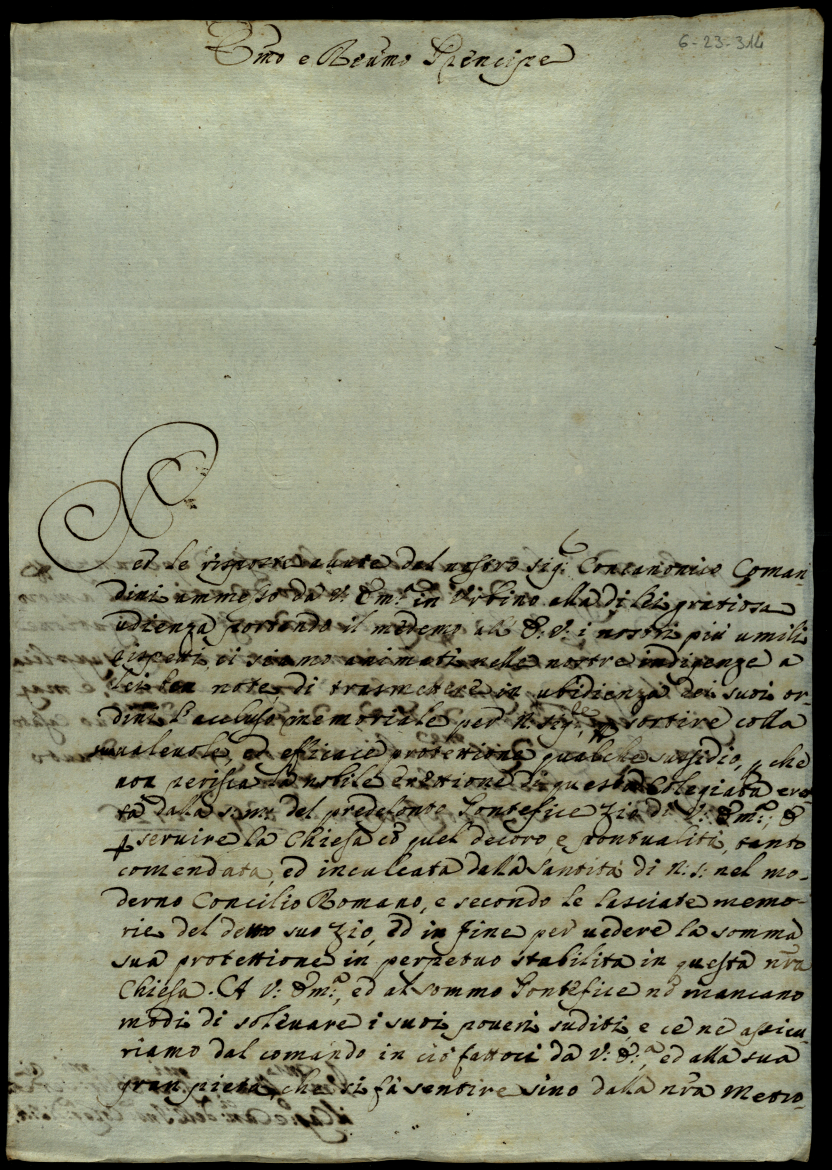 6-23-314
Emo e Reũmo Principe
ed le risposte avute dal nostro sig. Concanonico Coman-
dini ammesso da V. Emã in Urbino alla di lei gratiosa
udienza portando il medemo all' E. V. i nostri più umili
rispetti, ci siamo animati nelle nostre indigenze a
lei ben note, di trasmettere in ubidienza dei suoi or-
dini l'acclusso memoriale per N. Sigre, sortire colla
sua valevole, ed efficace protettione qualche sussidio, che
non perisca la nobile erettione di questa Colegiata eret
ta dalla s. m. del predefonto Pontefice Zio di V. Emã, e
servire la Chiesa cõ quel decoro, e pontualità, tanto
comendata, ed inculcata dalla Santità di N. S. nel mo-
derno Concilio Romano, e secondo le lasciate memo-
rie del detto suo Zio, ed in fine per vedere la somma
sua protettione in perpetuo stabilita in questa nrã
Chiesa. A V. Emã, ed al sommo Pontefice nõ mancano
modi di solevare i suoi poveri suditi, e ce ne assicu-
riamo dal comando in ciò fattoci da V. Eã, ed alla sua
gran pietà, che si fà sentire sino dalla nrã Metro-